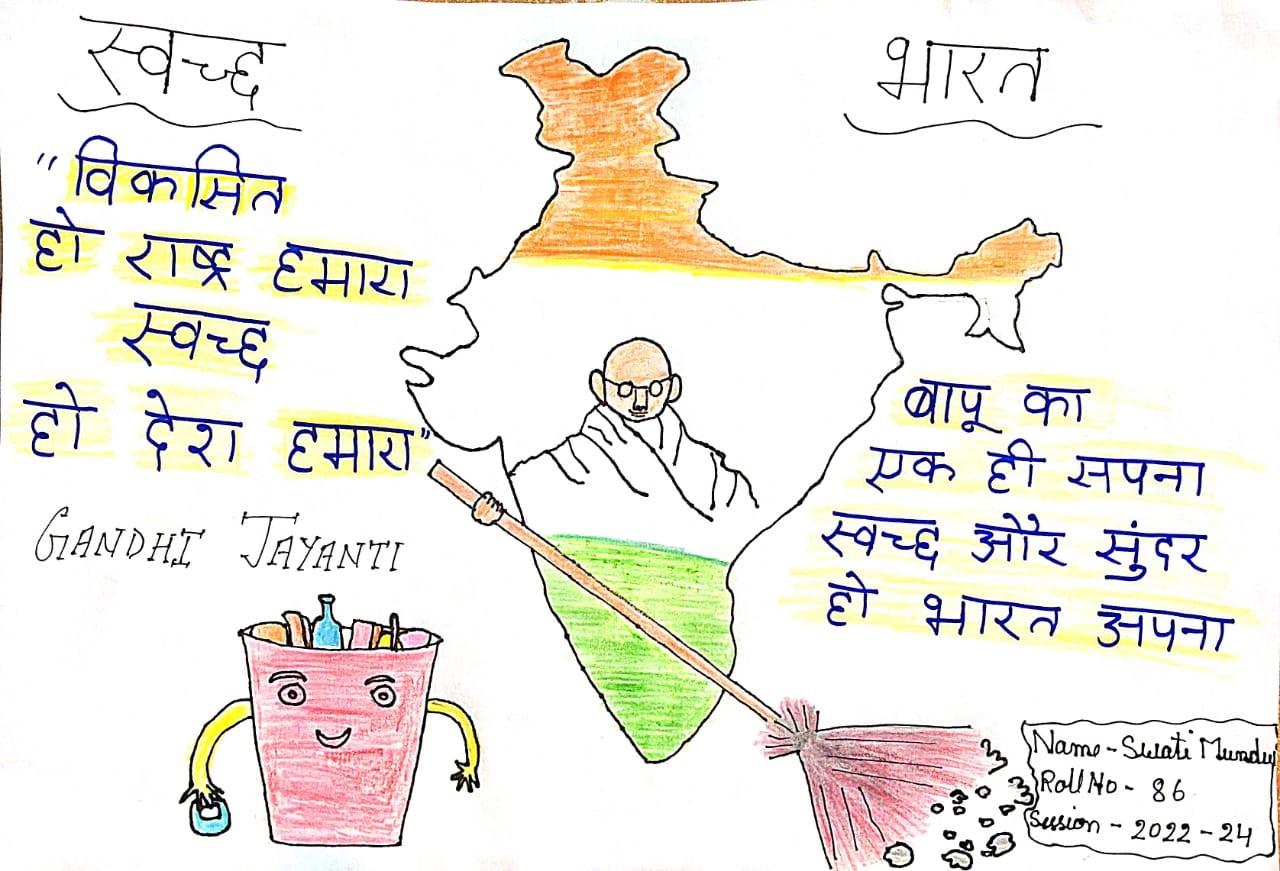 स्वच्छ
भारत
"विकसित
हो राष्ट्र हमारा
स्वच्छ
हो देश हमारा"
GANDHI JAYANTI
बापू का
एक ही सपना
स्वच्छ और सुंदर
हो भारत अपना
Name - Swati Mundu
Roll No - 86
Session - 2022 - 24